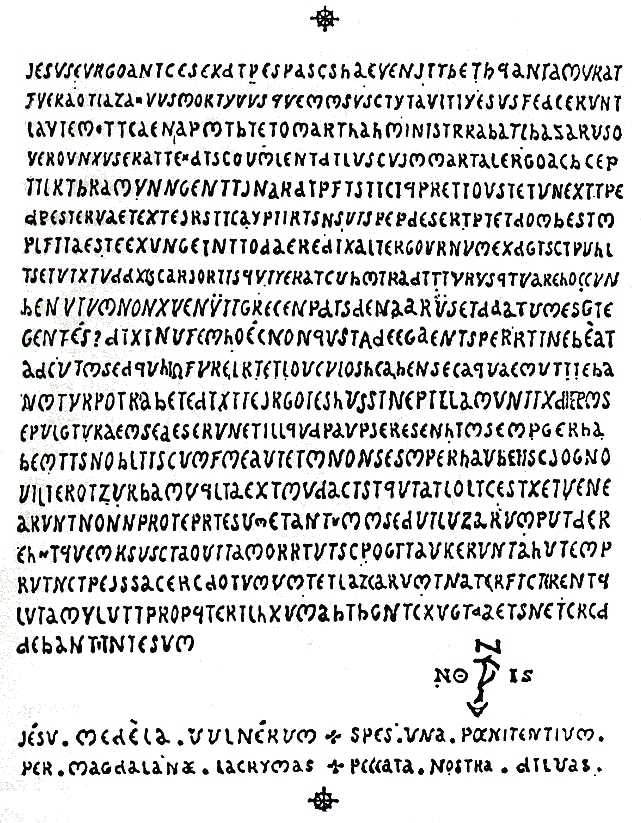 JESVSEVRGOANTCESEXATPESPASCSHAEVENJTTBETHQANTAMVRAT
FVERAOTIAZA=VVSMORTYVVS QVEMMSVSCTYTAVITIYESVSFEDCERVNT
LAVTEM·TTCAENAPMTBTETOMARTHAHMINISTRRABATLBAZARVSO
VEROVNXVSERATTE=DTSCOVMLENTATLVSCVJMMARTALERGOACBCEP
TTLKTBRAMVNNGENTTJNARDTPFTSTICIQPRETTOVSTETVNEXTTPE
DPESTERVAETEXTEJRSTICAYPIIRTSNSVISPEPDESERTPTETDOMBESTM
PLFTTAESTEEXVNGEINTTODAEREDIXALTERGOVRNVMEXDGTSCTPVHL
TSETVIXTVDDXGSCARJORTISQVIYERATCVHMTRADTTTVRVSQTVAREHOCCVN
HENVIVMNONXVENVTTGRECENPDTSDENAARVSETDDATVMESGTE
GENTÉS? DIXINVFEMHOÉCNONQVSTADEEGAENTSPERRTINEBÈAT
ADCVTMSEDQVHMFVRELRTETLOVCVLOSHCABENSECAQVAECMVTTIEBA
NMTVRPOTRABETEDTXTTEJRGOTESHVSSTNEPTLLAMVNTTXDIEPMS
EPVLGTVRAEMSEAESERVNETILLQVDPAVPSERESENHTMSEMPGERHA
BEMTTSNOBLTTSCVMFMEAVTETMNONSESMPERHAVBENSCJOGNO
VILTEROTZVRBAMVQLTAEXTMVDACTSTQVTATLOLTCESTXETVENE
ARVNTNONNPROTEPRTESVMETANTVMMSEDVTLVZARVMPVTDER
EH=TQVEMKSVSCTAOVTTAMORRTVTSCPOGTTAVKERVNTAHVTEMP
RVTNCTPEJSSACERCDOTVMVMTETLAZCARVMTNATCRFTCTRRENTQ
LVTAMYLVTTPROPQTERILHXVMABTHGNTCXVGT=AETSNETCRCD
DEBANTINTESVM
N
NO IS
JÉSV. MEDÈLA. VULNÉRUM ✢ SPES. UNA. PŒNITENTIVM.
PER. MAGDALANÆ. LACRYMAS ✢ PECCATA. NOSTRA. DILVAS.